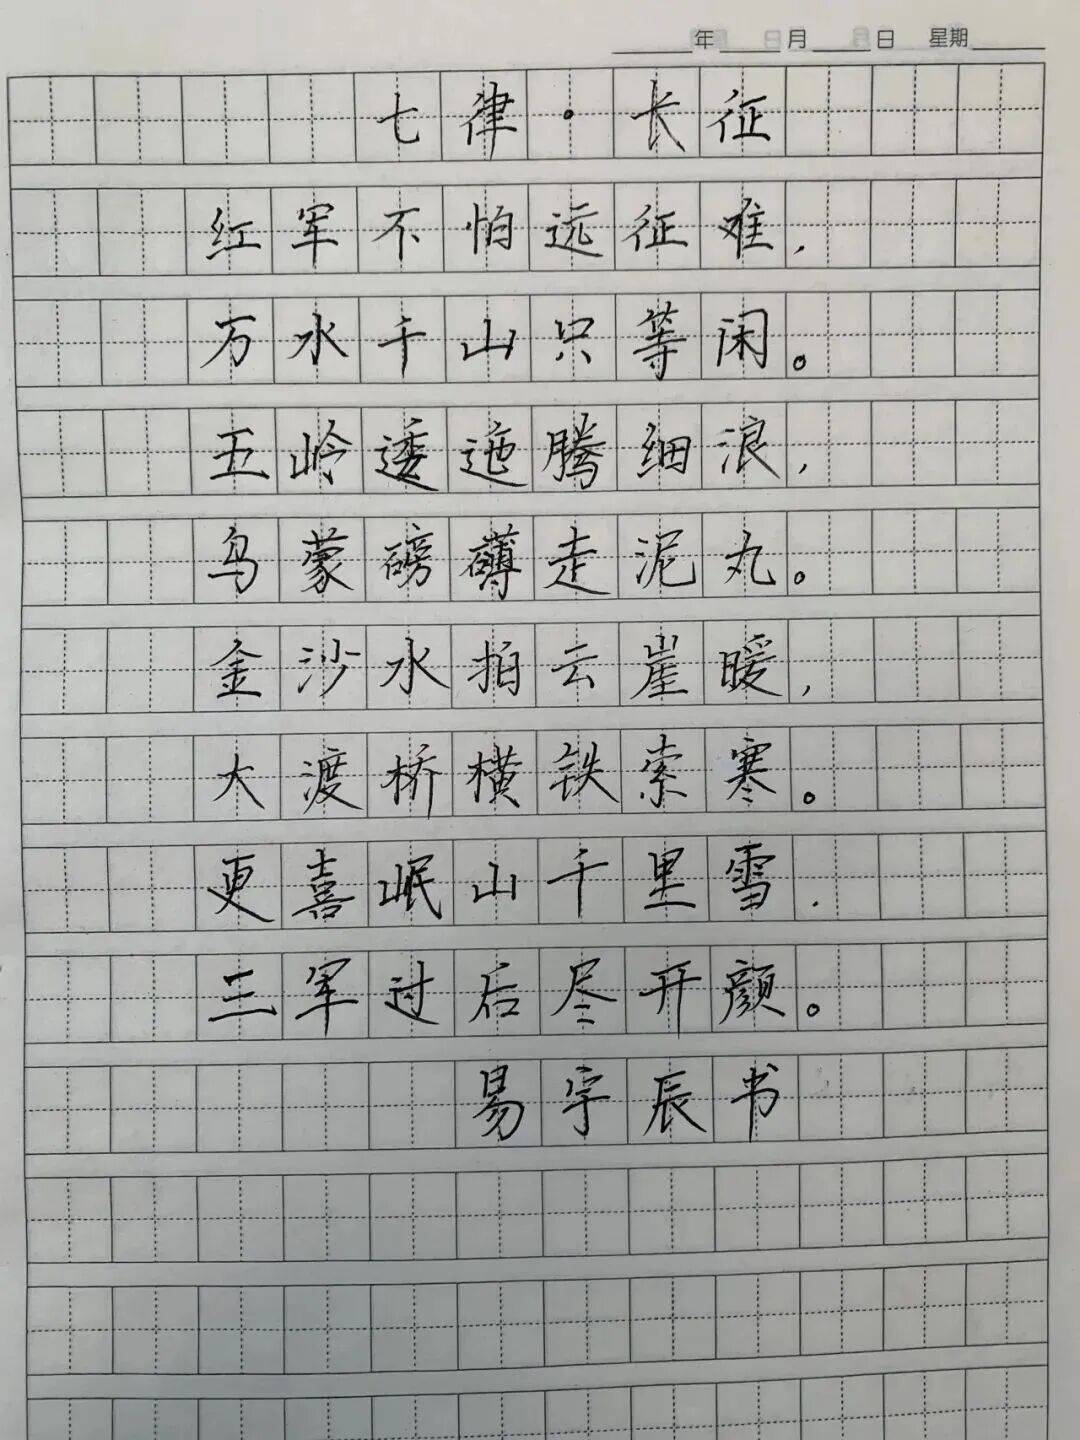 年 月 日 星期
七律·长征
红军不怕远征难，
万水千山只等闲。
五岭逶迤腾细浪，
乌蒙磅礴走泥丸。
金沙水拍云崖暖，
大渡桥横铁索寒。
更喜岷山千里雪.
三军过后尽开颜。
易宇辰书